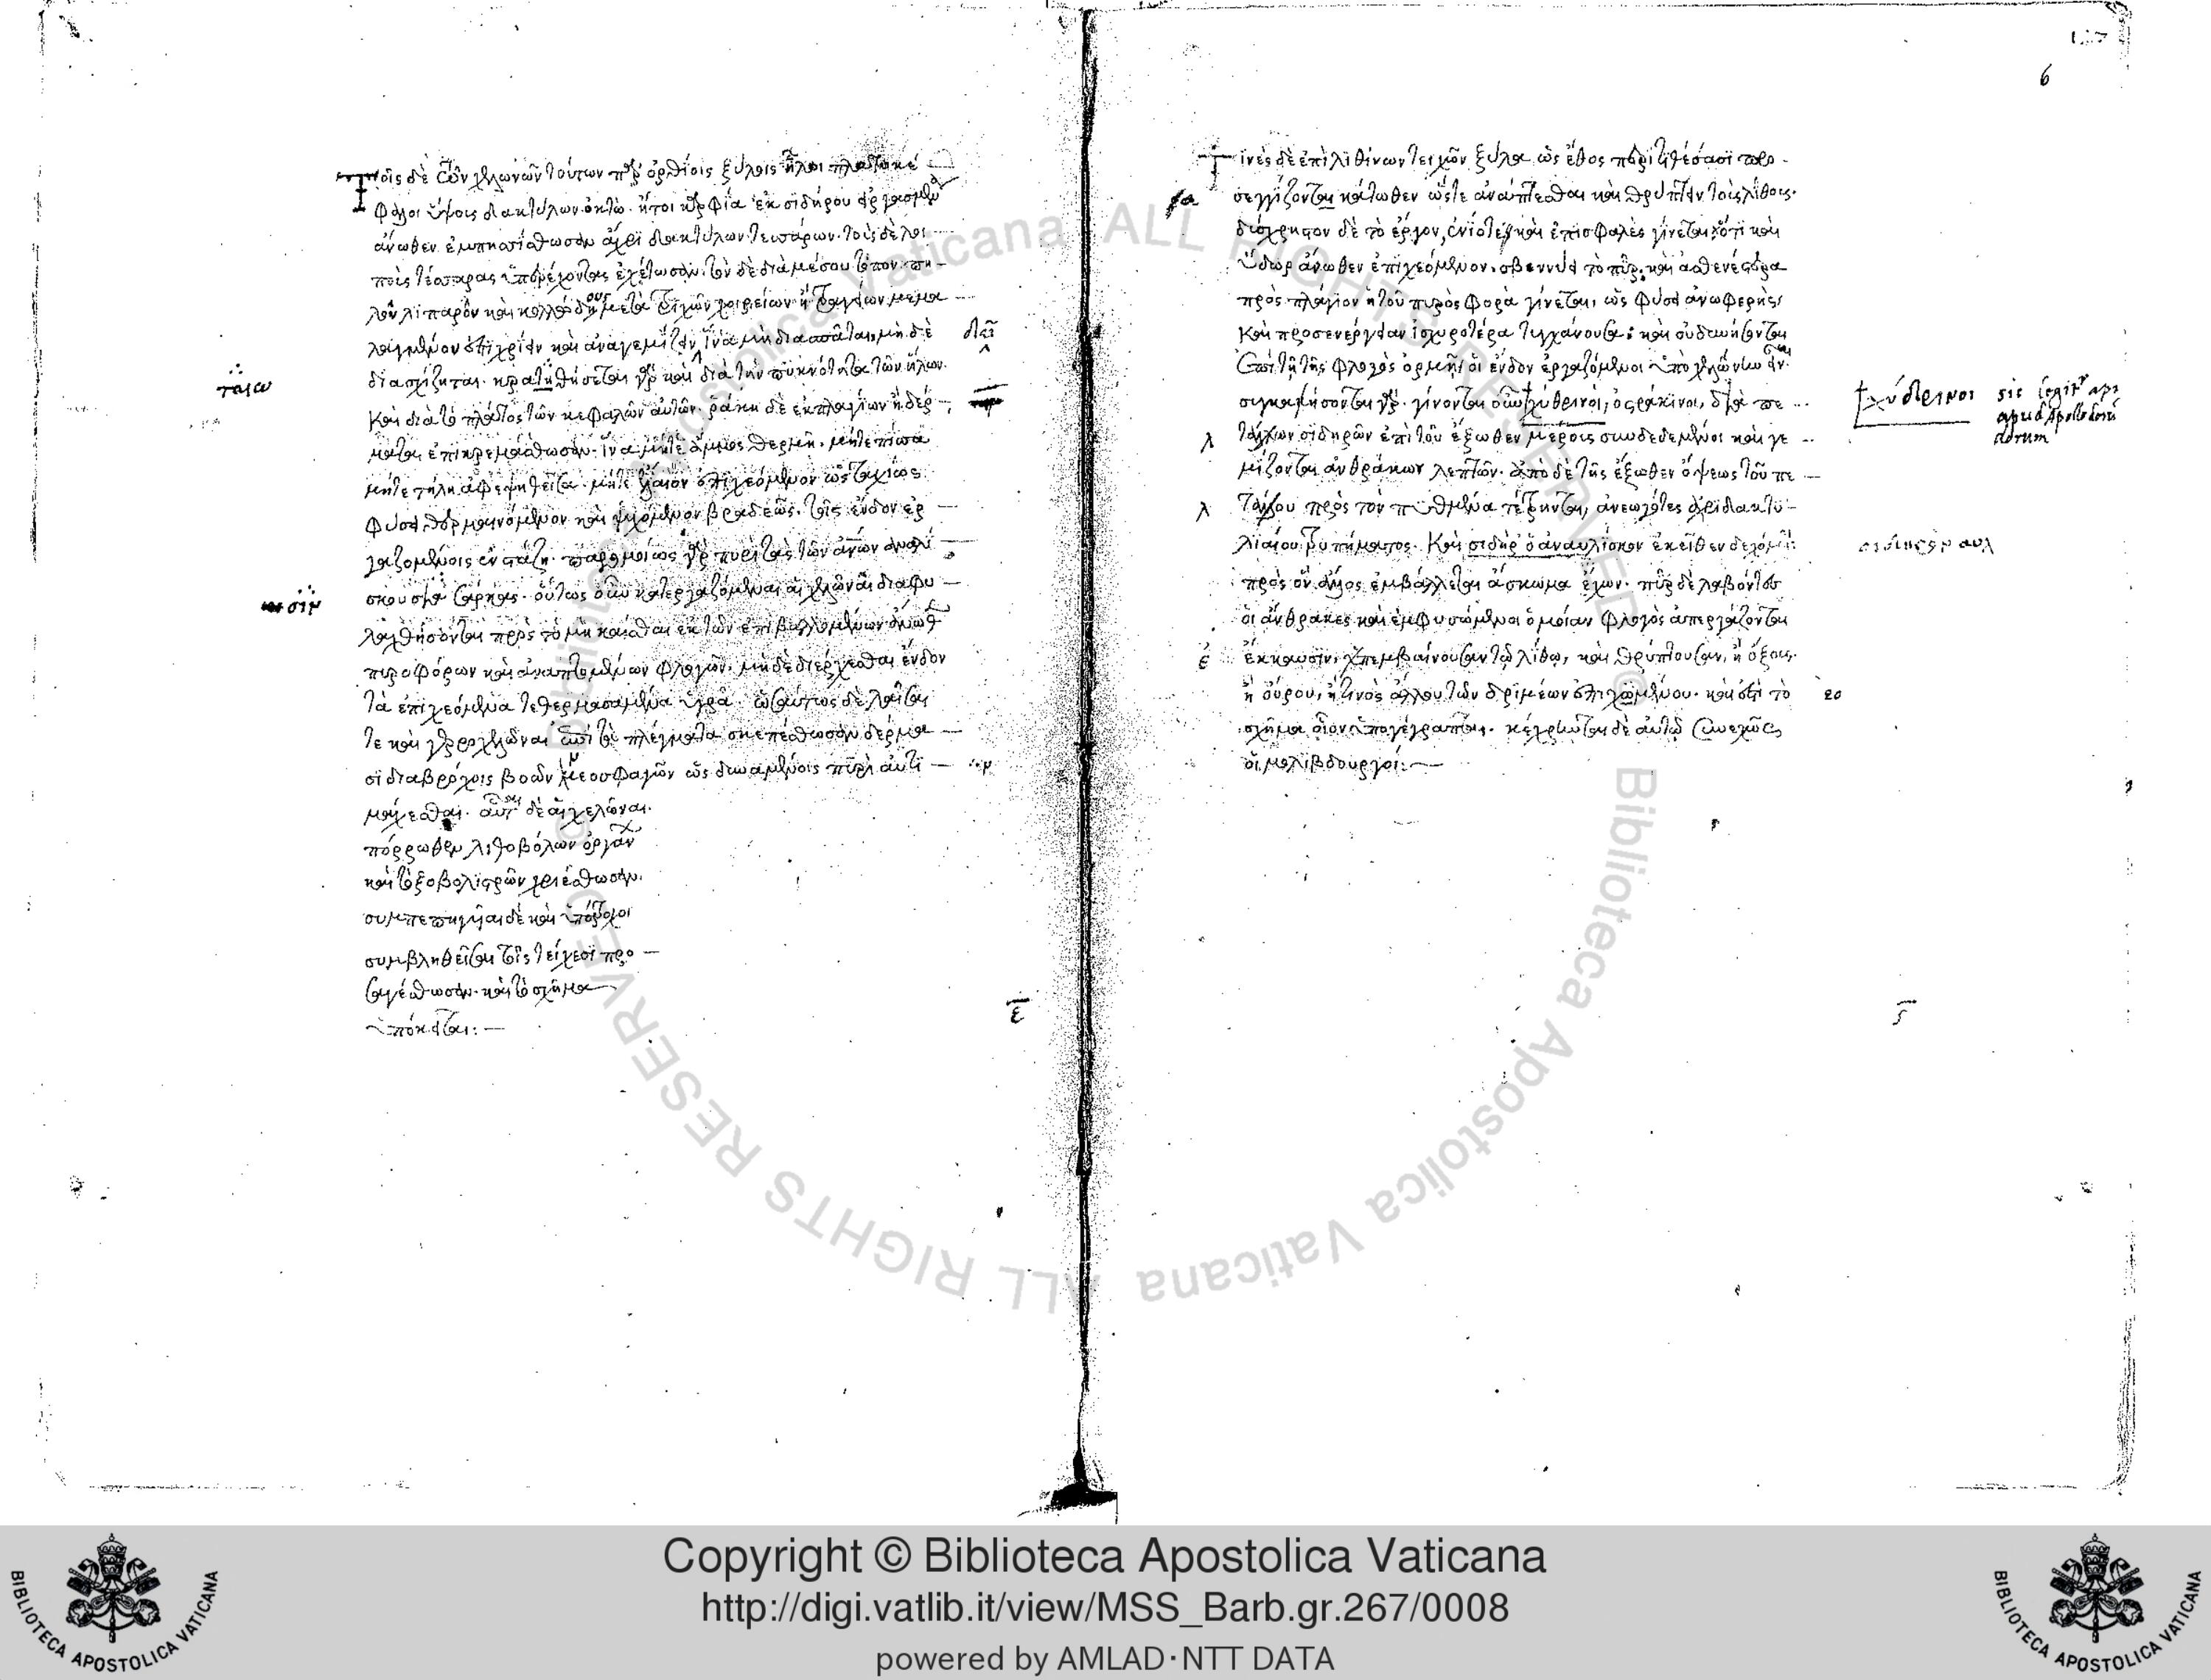 Τοῖς δὲ τῶν χελωνῶν τούτων παρορθίοις ξύλοις ἧλοι πλατυκέ
φαλοι ὕψους δακτύλων ὀκτὼ ἤτοι καρφία ἐκ σιδήρου εἰργασμένα
ἄνωθεν ἐμπησσέσθωσαν ἄχρι δακτύλων τεσσάρων· τοὺς δὲ λοι
ποὺς τέσσαρας ὑπερέχοντας ἐχέτωσαν. τὸν δὲ διὰ μέσου τόπον πη
λὸν λιπαρὸν καὶ κολλώδη μετὰ τριχῶν χοιρείων ἢ τραγείων μεμα
λαγμένον ἐπιχρίειν καὶ ἀναγεμίζειν, ἵνα μὴ διασπᾶται, μὴ δὲ
διασχίζηται. κρατηθήσεται γὰρ καὶ διὰ τὴν πυκνότητα τῶν ἥλων
καὶ διὰ τὸ πλάτος τῶν κεφαλῶν αὐτῶν. ῥάκη δὲ ἐκ πλαγίων ἢ δέρ
ματα ἐπικρεμάσθωσαν· ἵνα μήτε ἄμμος θερμή, μήτε πίσσα
μήτε τῆλη ἀφεψηθεῖσα· μήτε ἔλαιον ἐπιχεόμενον ὡς ταχέως
φύσει θερμαινόμενον καὶ ψυχόμενον βραδέως, τοῖς ἔνδον ἐρ
γαζομένοις ἐνστάζη. παρομοίως γὰρ πυρὶ τὰς τῶν ἀνῶν ἀναλί
σκουσι σάρκας. οὕτως οὖν κατεργαζόμεναι αἱ χελῶναι διαφυ
λαχθήσονται πρὸς τὸ μὴ καίεσθαι ἐκ τῶν ἐπιβαλλομένων ἄνωθ
πυροφόρων καὶ ἀναπτομένων φλογῶν, μὴ δὲ διέρχεσθαι ἔνδον
τὰ ἐπιχεόμενα τεθερμασμένα ὑγρά. ὡσαύτως δὲ λαῖσαι
τε καὶ γερροχελῶναι ἐπὶ τὰ πλέγματα σκεπέσθωσαν δέρμα
σι διαβρόχοις βοῶν νεοσφαγῶν ὡς δυναμένοις πυρὶ ἀντι
μάχεσθαι. αὗται δὲ αἱ χελῶναι
πόρρωθεν λιθοβόλων ὀργάν
καὶ τοξοβολιστρῶν χριέσθωσαν.
συμπεπηγμέναι δὲ καὶ ὑπότροχοι
συμβληθεῖσαι τοῖς τείχεσι προ
σαγέσθωσαν. καὶ τὸ σχῆμα
ὑπόκειται:—
ε
6
Τινὲς δὲ ἐπὶ λιθίνων τειχῶν ξύλα ὡς ἔθος περιτιθέασι προ
σεγγίζοντα κάτωθεν ὥστε ἀνάπτεσθαι καὶ θρύπτειν τοὺς λίθους.
δύσχρηστον δὲ τὸ ἔργον, ἐνίοτε καὶ ἐπισφαλὲς γίνεται· ὅτι καὶ
ὕδωρ ἄνωθεν ἐπιχεόμενον, σβεννύει τὸ πῦρ· καὶ ἀσθενεστέρα
πρὸς πλάγιον ἡ τοῦ πυρὸς φορὰ γίνεται, ὡς φύσει ἀνωφερὴς
καὶ προσενέργειαν ἰσχυροτέρα τυγχάνουσα· καὶ οὐ δυνήσονται
ἐπὶ τῇ τῆς φλογὸς ὁρμῇ οἱ ἔνδον ἐργαζόμενοι ὑπὸ χελώνην εἶναι
συγκαήσονται γάρ. γίνονται οὖν χυθρινοί, ὀστράκινοι, διὰ πε
τάλων σιδηρῶν ἐπὶ τοῦ ἔξωθεν μέρους συνδεδεμένοι καὶ γε
μίζονται ἀνθράκων λεπτῶν. ἀπὸ δὲ τῆς ἔξωθεν ὄψεως τοῦ πε
τάλου πρὸς τὸν πυθμένα τέτρηνται, ἀνεωγότες ἄχρι δακτυ
λιαίου τρυπήματος. καὶ σιδηροαναυλίσκον ἐκεῖθεν δεχόμενοι
πρὸς ὃν ἄλλος ἐμβάλλεται ἄσκωμα ἔχων. πῦρ δὲ λαβόντες
οἱ ἄνθρακες καὶ ἐμφυσώμενοι ὁμοίαν φλογὸς ἀπεργάζονται
ἔκκαυσιν, ὑπεμβαίνουσαν τῷ λίθῳ, καὶ θρύπτουσαν, ἢ ὄξους
ἢ οὔρου, ἤ τινος ἄλλου τῶν δριμέων ἐπιχεομένου. καὶ ἔστι τὸ
σχῆμα οἷον ὑπογέγραπται. κέχρηνται δὲ αὐτῷ συνεχῶς
οἱ μολιβδουργοί:—
χύθρινοι sic legitur
apud Apollo
dorum
Copyright © Biblioteca Apostolica Vaticana
http://digi.vatlib.it/view/MSS_Barb.gr.267/0008
powered by AMLAD·NTT DATA
BIBLIOTECA APOSTOLICA VATICANA
BIBLIOTECA APOSTOLICA VATICANA